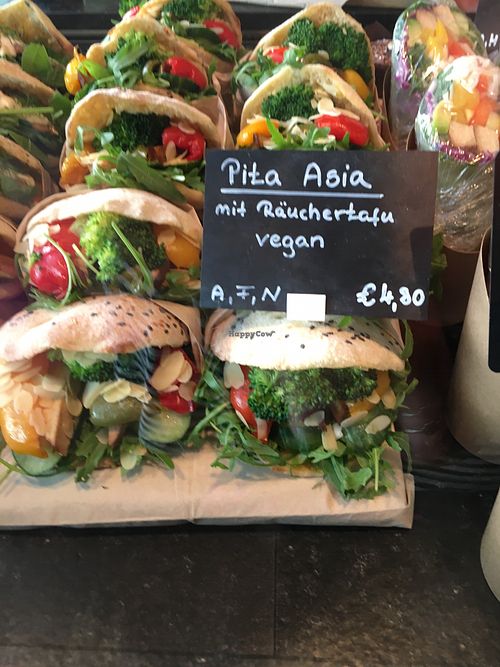 Pita Asia
mit Räuchertafu
vegan
A, F, N €4,80
HappyCow